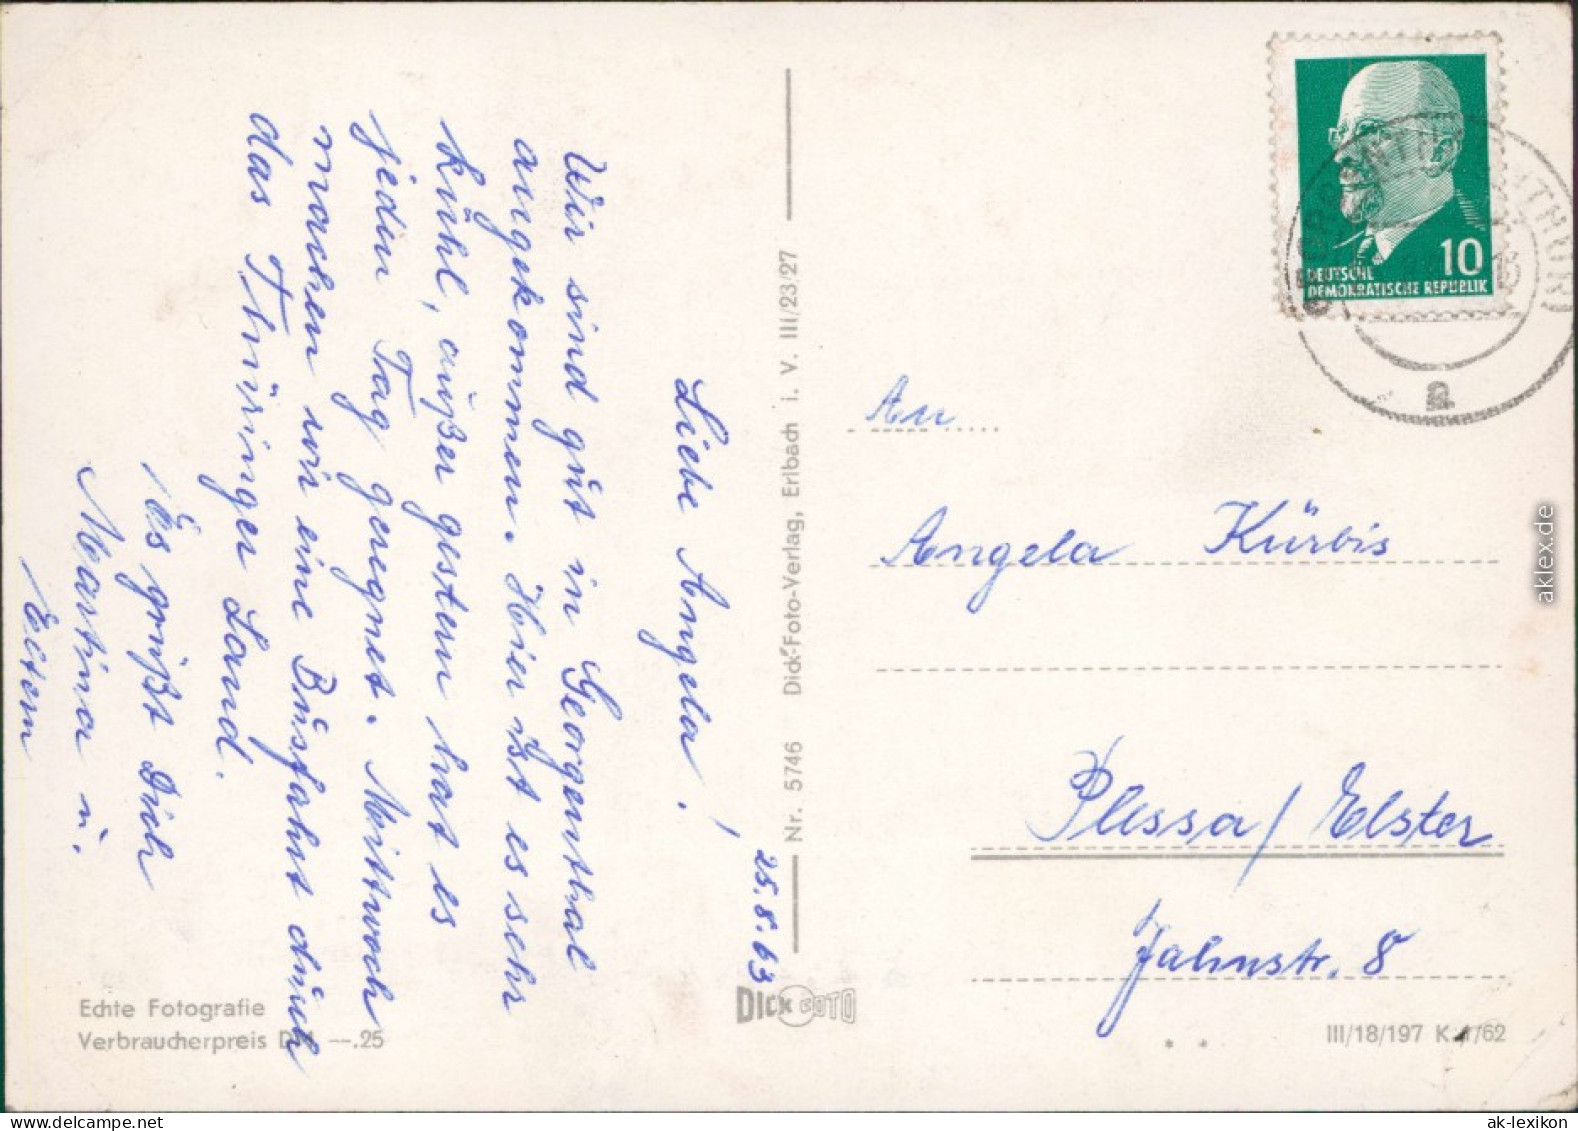 25.8.63
Liebe Angela!
Wir sind gut in Georgenthal
angekommen. Hier ist es sehr
kühl, außer gestern hat es
jeden Tag geregnet. Mittwoch
machen wir eine Busfahrt durch
das Thüringer Land.
Es grüßt Dich
Martina u.
Eltern
Echte Fotografie
Verbraucherpreis --.25
Nr. 5746 Dick-Foto-Verlag, Erlbach i. V. III/23/27
DICK FOTO
10
DEUTSCHE
DEMOKRATISCHE REPUBLIK
a
An
Angela Kürbis
Plessa/Elster
Jahnstr. 8
III/18/197 K 1/62
aklex.de
ak-lexikon